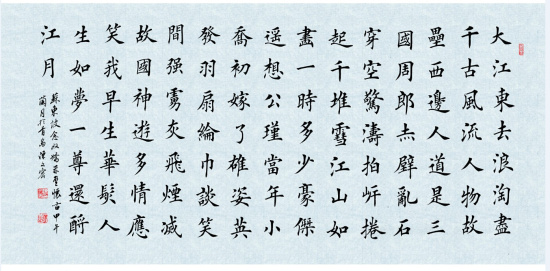 大江東去浪淘盡
千古風流人物故
壘西邊人道是三
國周郎赤壁亂石
穿空驚濤拍岍捲
起千堆雪江山如
畫一時多少豪傑
遥想公瑾當年小
喬初嫁了雄姿英
發羽扇綸巾談笑
間强虜灰飛煙滅
故國神遊多情應
笑我早生華髮人
生如夢一尊還酹
江月
蘇東坡念奴嬌赤壁懷古甲午
蘭月於青島陳